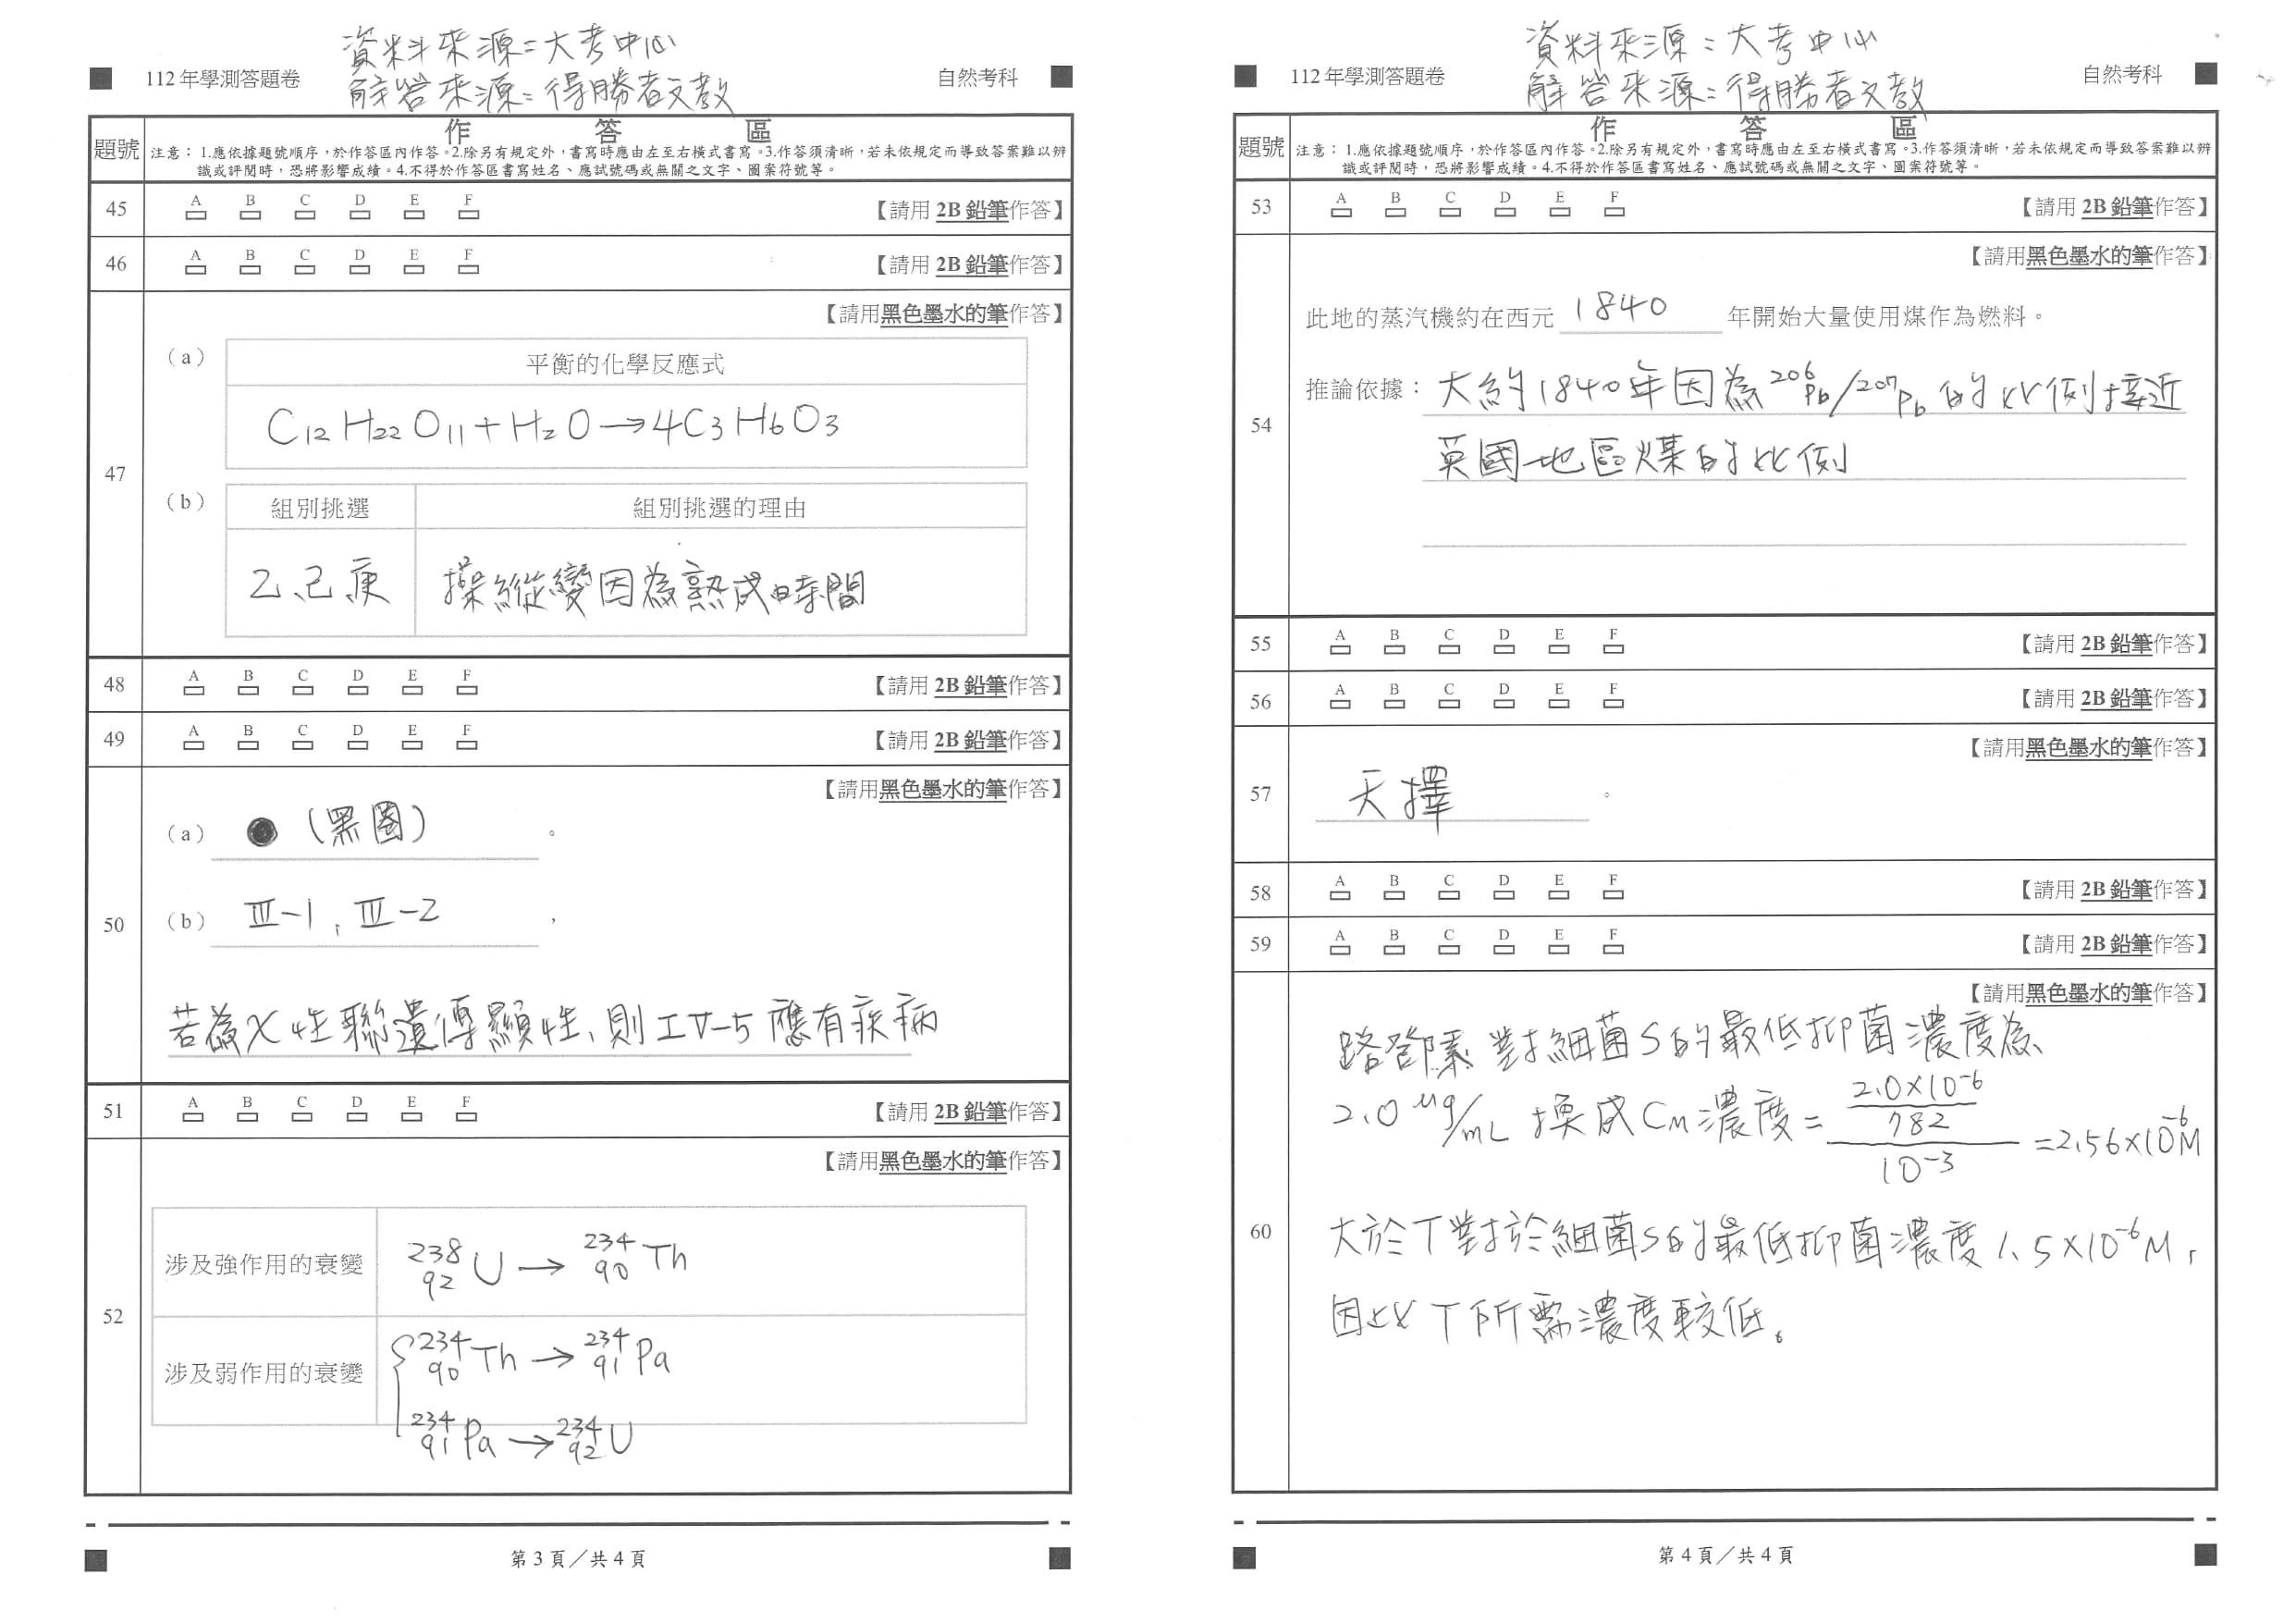 資料來源:大考中心
112年學測答題卷
解答來源:得勝者文教
自然考科
作答區
題號
注意：1.應依據題號順序，於作答區內作答。2.除另有規定外，書寫時應由左至右橫式書寫。3.作答須清晰，若未依規定而導致答案難以辨
識或評閱時，恐將影響成績。4.不得於作答區書寫姓名、應試號碼或無關之文字、圖案符號等。
45 A B C D E F 【請用 2B 鉛筆作答】
46 A B C D E F 【請用 2B 鉛筆作答】
47
【請用黑色墨水的筆作答】
（a）
平衡的化學反應式
C₁₂H₂₂O₁₁+H₂O→4C₃H₆O₃
（b）
組別挑選 組別挑選的理由
乙、己、庚 操縱變因為熟成時間
48 A B C D E F 【請用 2B 鉛筆作答】
49 A B C D E F 【請用 2B 鉛筆作答】
50
【請用黑色墨水的筆作答】
（a） ●（黑圈）。
（b） Ⅲ-1, Ⅲ-2，
若為X性聯遺傳顯性、則IV-5應有疾病
51 A B C D E F 【請用 2B 鉛筆作答】
52
【請用黑色墨水的筆作答】
涉及強作用的衰變 ²³⁸₉₂U→²³⁴₉₀Th
涉及弱作用的衰變 ²³⁴₉₀Th→²³⁴₉₁Pa
²³⁴₉₁Pa→²³⁴₉₂U
第 3 頁／共 4 頁
資料來源:大考中心
112年學測答題卷
解答來源:得勝者文教
自然考科
作答區
題號
注意：1.應依據題號順序，於作答區內作答。2.除另有規定外，書寫時應由左至右橫式書寫。3.作答須清晰，若未依規定而導致答案難以辨
識或評閱時，恐將影響成績。4.不得於作答區書寫姓名、應試號碼或無關之文字、圖案符號等。
53 A B C D E F 【請用 2B 鉛筆作答】
54
【請用黑色墨水的筆作答】
此地的蒸汽機約在西元 1840 年開始大量使用煤作為燃料。
推論依據：大約1840年因為²⁰⁶Pb/²⁰⁷Pb的比例接近
英國地區煤的比例
55 A B C D E F 【請用 2B 鉛筆作答】
56 A B C D E F 【請用 2B 鉛筆作答】
57
【請用黑色墨水的筆作答】
天擇。
58 A B C D E F 【請用 2B 鉛筆作答】
59 A B C D E F 【請用 2B 鉛筆作答】
60
【請用黑色墨水的筆作答】
路鄧素對細菌S的最低抑菌濃度為
2.0 μg/mL 換成CM濃度=(2.0×10⁻⁶/782)/10⁻³=2.56×10⁻⁶M
大於T對於細菌S的最低抑菌濃度1.5×10⁻⁶M,
因此T所需濃度較低。
第 4 頁／共 4 頁